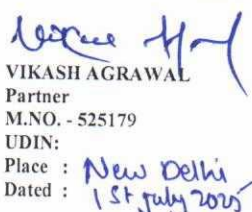 VIKASH AGRAWAL
Partner
M.NO. - 525179
UDIN:
Place : New Delhi
Dated : 1st July 2025